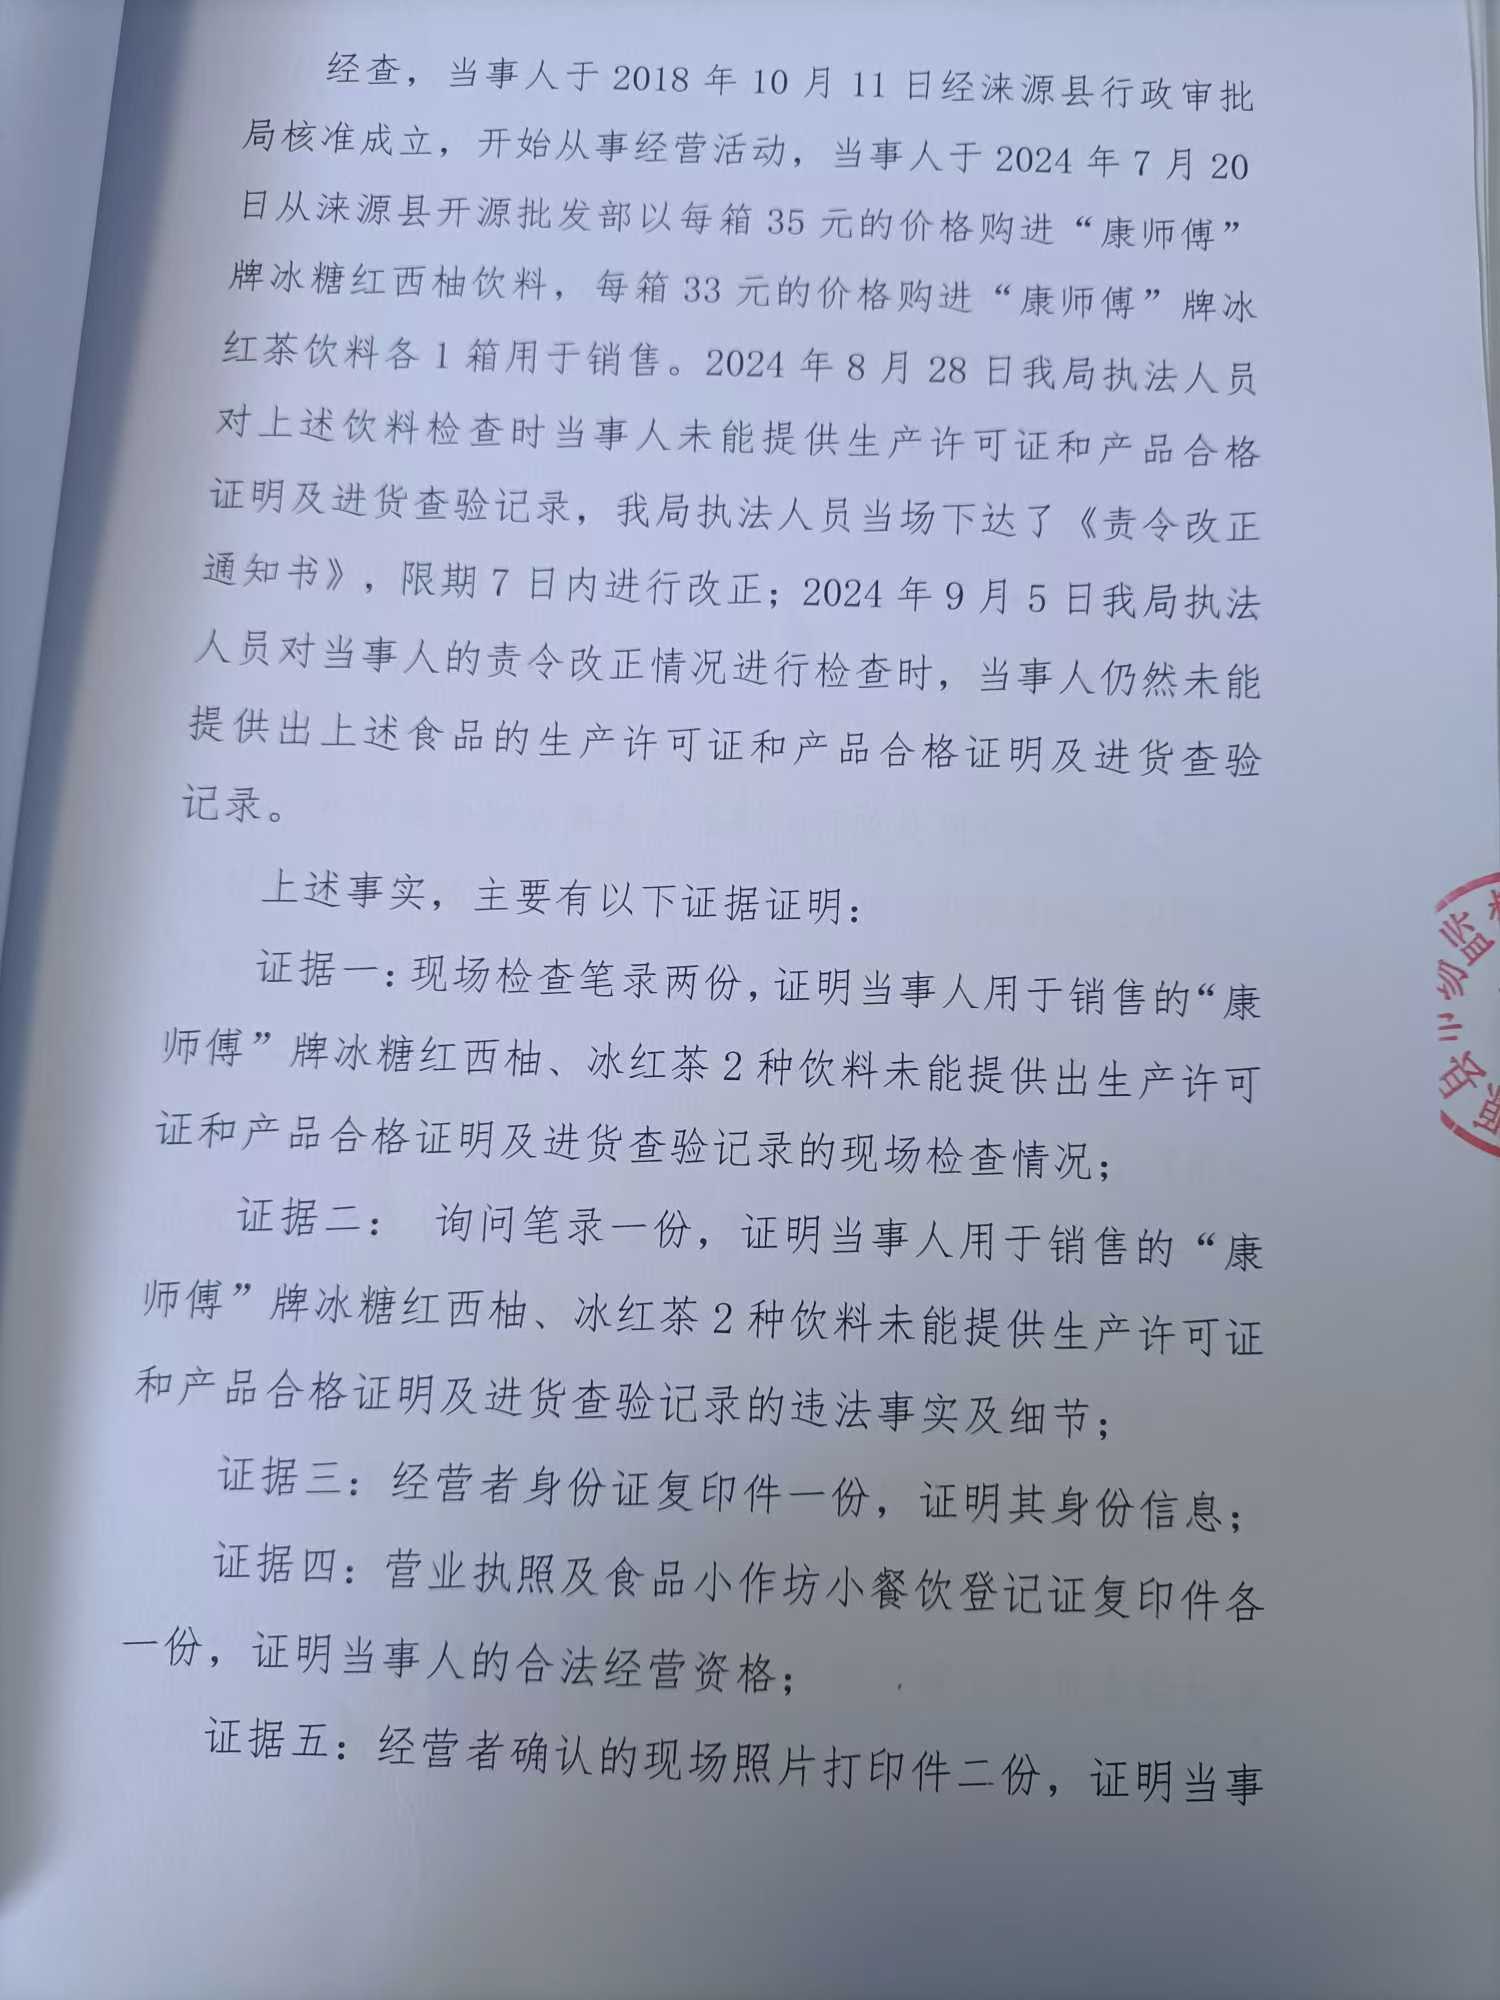 经查，当事人于 2018 年 10 月 11 日经涞源县行政审批
局核准成立，开始从事经营活动，当事人于 2024 年 7 月 20
日从涞源县开源批发部以每箱 35 元的价格购进“康师傅”
牌冰糖红西柚饮料，每箱 33 元的价格购进“康师傅”牌冰
红茶饮料各 1 箱用于销售。2024 年 8 月 28 日我局执法人员
对上述饮料检查时当事人未能提供生产许可证和产品合格
证明及进货查验记录，我局执法人员当场下达了《责令改正
通知书》，限期 7 日内进行改正；2024 年 9 月 5 日我局执法
人员对当事人的责令改正情况进行检查时，当事人仍然未能
提供出上述食品的生产许可证和产品合格证明及进货查验
记录。
上述事实，主要有以下证据证明：
证据一：现场检查笔录两份，证明当事人用于销售的“康
师傅”牌冰糖红西柚、冰红茶 2 种饮料未能提供出生产许可
证和产品合格证明及进货查验记录的现场检查情况；
证据二： 询问笔录一份，证明当事人用于销售的“康
师傅”牌冰糖红西柚、冰红茶 2 种饮料未能提供生产许可证
和产品合格证明及进货查验记录的违法事实及细节；
证据三：经营者身份证复印件一份，证明其身份信息；
证据四：营业执照及食品小作坊小餐饮登记证复印件各
一份，证明当事人的合法经营资格；
证据五：经营者确认的现场照片打印件二份，证明当事
监